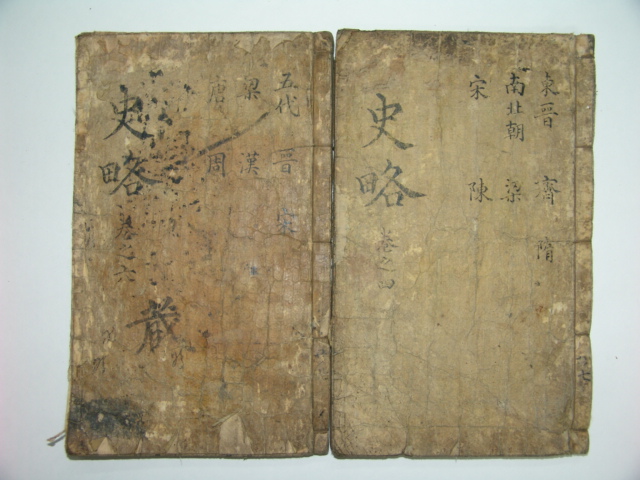 東晋 齊 隋
南北朝 梁
宋 陳
史略
卷之四
五代 晋 宋
梁 漢
唐 周
史略
卷之六